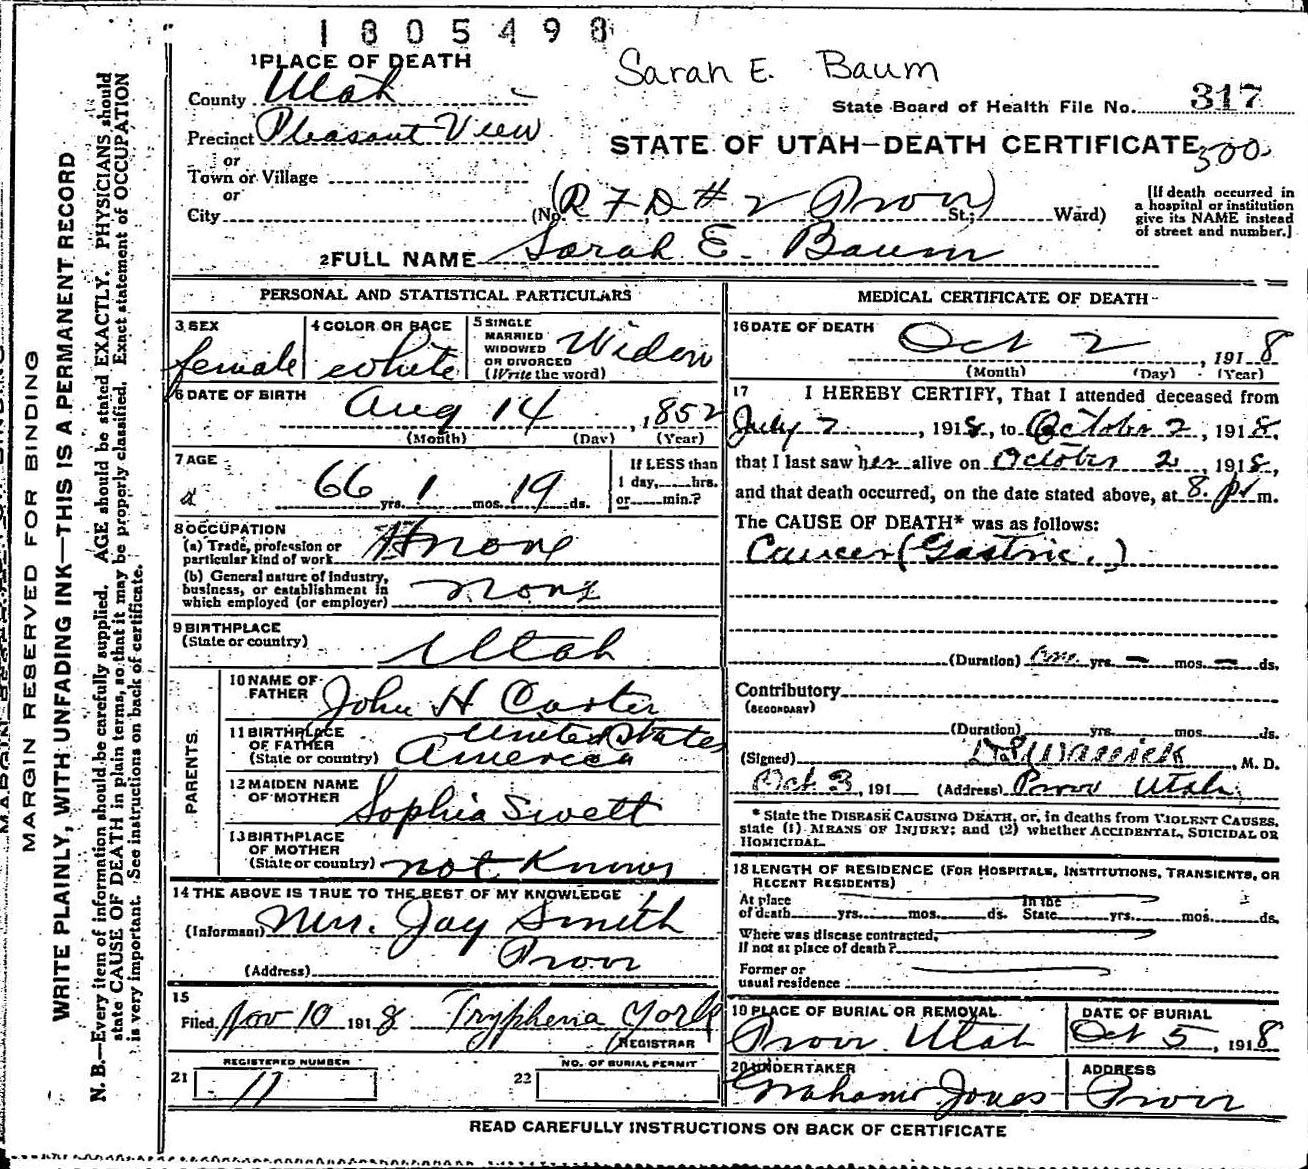 1805498
Sarah E. Baum
1 PLACE OF DEATH
County Utah
State Board of Health File No. 317
Precinct Pleasant View
STATE OF UTAH—DEATH CERTIFICATE
500
or
Town or Village
or
City (No. R F D # 2 Provo) St.; Ward)
[If death occurred in
a hospital or institution
give its NAME instead
of street and number.]
2 FULL NAME Sarah E. Baum
PERSONAL AND STATISTICAL PARTICULARS
3 SEX
female
4 COLOR OR RACE
white
5 SINGLE
MARRIED
WIDOWED
OR DIVORCED
(Write the word)
Widow
6 DATE OF BIRTH
Aug 14, 1852
(Month) (Day) (Year)
7 AGE
66 yrs. 1 mos. 19 ds.
If LESS than
1 day, hrs.
or min.?
8 OCCUPATION
(a) Trade, profession or
particular kind of work none
(b) General nature of industry,
business, or establishment in
which employed (or employer) none
9 BIRTHPLACE
(State or country) Utah
PARENTS
10 NAME OF
FATHER John H Carter
11 BIRTHPLACE
OF FATHER
(State or country) United States
America
12 MAIDEN NAME
OF MOTHER Sophia Swett
13 BIRTHPLACE
OF MOTHER
(State or country) not Known
14 THE ABOVE IS TRUE TO THE BEST OF MY KNOWLEDGE
(Informant) Mrs. Jay Smith
(Address) Provo
15
Filed Nov 10 1918 Tryphena York
REGISTRAR
REGISTERED NUMBER
21 11
NO. OF BURIAL PERMIT
22
MEDICAL CERTIFICATE OF DEATH
16 DATE OF DEATH
Oct 2, 1918
(Month) (Day) (Year)
17 I HEREBY CERTIFY, That I attended deceased from
July 2, 1918, to October 2, 1918,
that I last saw her alive on October 2, 1918,
and that death occurred, on the date stated above, at 8 P m.
The CAUSE OF DEATH* was as follows:
Cancer (Gastric.)
(Duration) One yrs. – mos. – ds.
Contributory
(SECONDARY)
(Duration) yrs. mos. ds.
(Signed) Warrick, M. D.
Oct 3, 191 (Address) Provo Utah
* State the DISEASE CAUSING DEATH, or, in deaths from VIOLENT CAUSES,
state (1) MEANS OF INJURY; and (2) whether ACCIDENTAL, SUICIDAL OR
HOMICIDAL.
18 LENGTH OF RESIDENCE (FOR HOSPITALS, INSTITUTIONS, TRANSIENTS, OR
RECENT RESIDENTS)
At place
of death yrs. mos. ds.
In the
State yrs. mos. ds.
Where was disease contracted,
if not at place of death?
Former or
usual residence
19 PLACE OF BURIAL OR REMOVAL
Provo Utah
DATE OF BURIAL
Oct 5, 1918
20 UNDERTAKER
Graham Jones
ADDRESS
Provo
READ CAREFULLY INSTRUCTIONS ON BACK OF CERTIFICATE
MARGIN RESERVED FOR BINDING
WRITE PLAINLY, WITH UNFADING INK—THIS IS A PERMANENT RECORD
N. B.—Every item of information should be carefully supplied. AGE should be stated EXACTLY. PHYSICIANS should
state CAUSE OF DEATH in plain terms, so that it may be properly classified. Exact statement of OCCUPATION
is very important. See instructions on back of certificate.